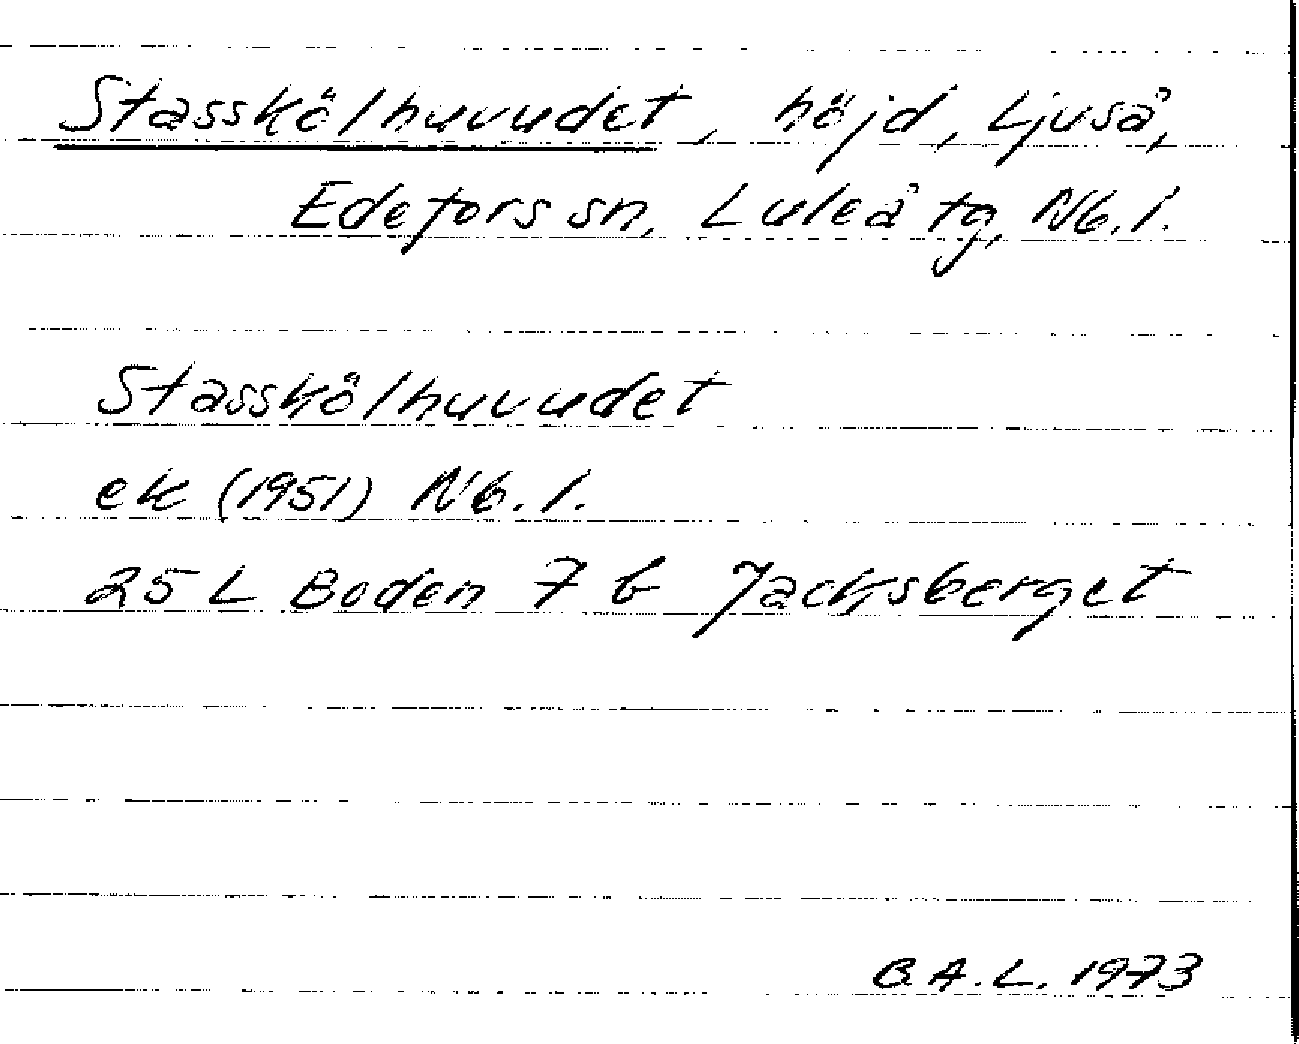 Stasskölhuvudet, höjd, Ljuså,
Edefors sn, Luleå tg, Nb. l.
Stasskölhuvudet
ek (1951) Nb. l.
25 L Boden 7 b Jacksberget
B.A.L. 1973